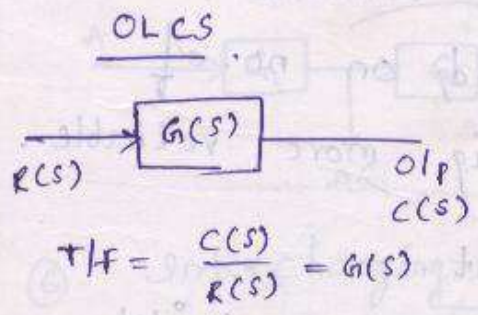 OLCS
G(S)
R(S)
O/p
C(S)
T/F = C(S)/R(S) = G(S)